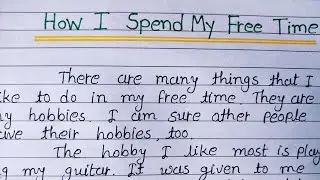 How I Spend My Free Time
There are many things that I
ike to do in my free time. They are
ny hobbies. I am sure other people
ave their hobbies, too.
The hobby I like most is play
ng my guitar. It was given to me